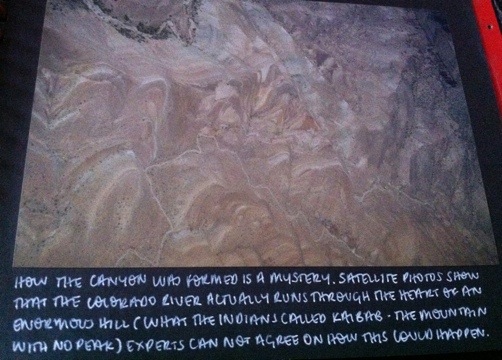 HOW THE CANYON WAS FORMED IS A MYSTERY. SATELLITE PHOTOS SHOW
THAT THE COLORADO RIVER ACTUALLY RUNS THROUGH THE HEART OF AN
ENORMOUS HILL (WHAT THE INDIANS CALLED KAIBAB - THE MOUNTAIN
WITH NO PEAK) EXPERTS CAN NOT AGREE ON HOW THIS COULD HAPPEN.